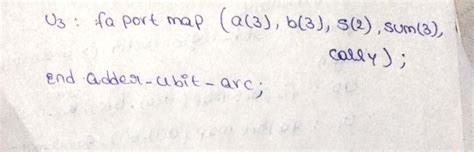 U3 : fa port map (a(3), b(3), s(2), sum(3),
carry);
end adder-4bit-arc;